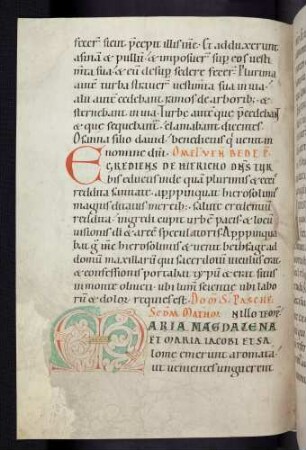 fecer sicut p̄cepit illis ihc. Et adduxerunt
asinā & pullū. & imposuer̄ sup eos uesti
mta sua & eū desup sedere fecer. Plurima
aute turba strauer uestimta sua in uia.
alii aute cedebant ramos de arborib; &
sternebant in uia. Turbe aute que p̄cedebant
& que sequebant clamabant dicentes.
Osanna filio dauid. benedictus q uenit in
nomine dn̄i. Omel ven bede p.
EGREDIENS DE HIERICHO DN̄S TUR
bis eductis inde quā plurimis &
reddita sanitate. Appropinquat hierosolimis
magnis ditatus mercib; salute credentiū
reddita. ingredi cupit urbē pacis & locū
uisionis dī & arcē speculatoris. Appropinqua
bat g ihc hierosolimis & uenit bethfage ad
domū maxillarū qui sacerdotū
& confessionis portabat typū & erat situs
in monte oliueti. ubi lum scientie. ubi labo
rū & dolor requies est. Dom S. Pasche
Scdm Mathm In illo tempr
MARIA MAGDALENA
ET MARIA IACOBI ET SA
lome emerunt aromata
ut uenientes unguerent